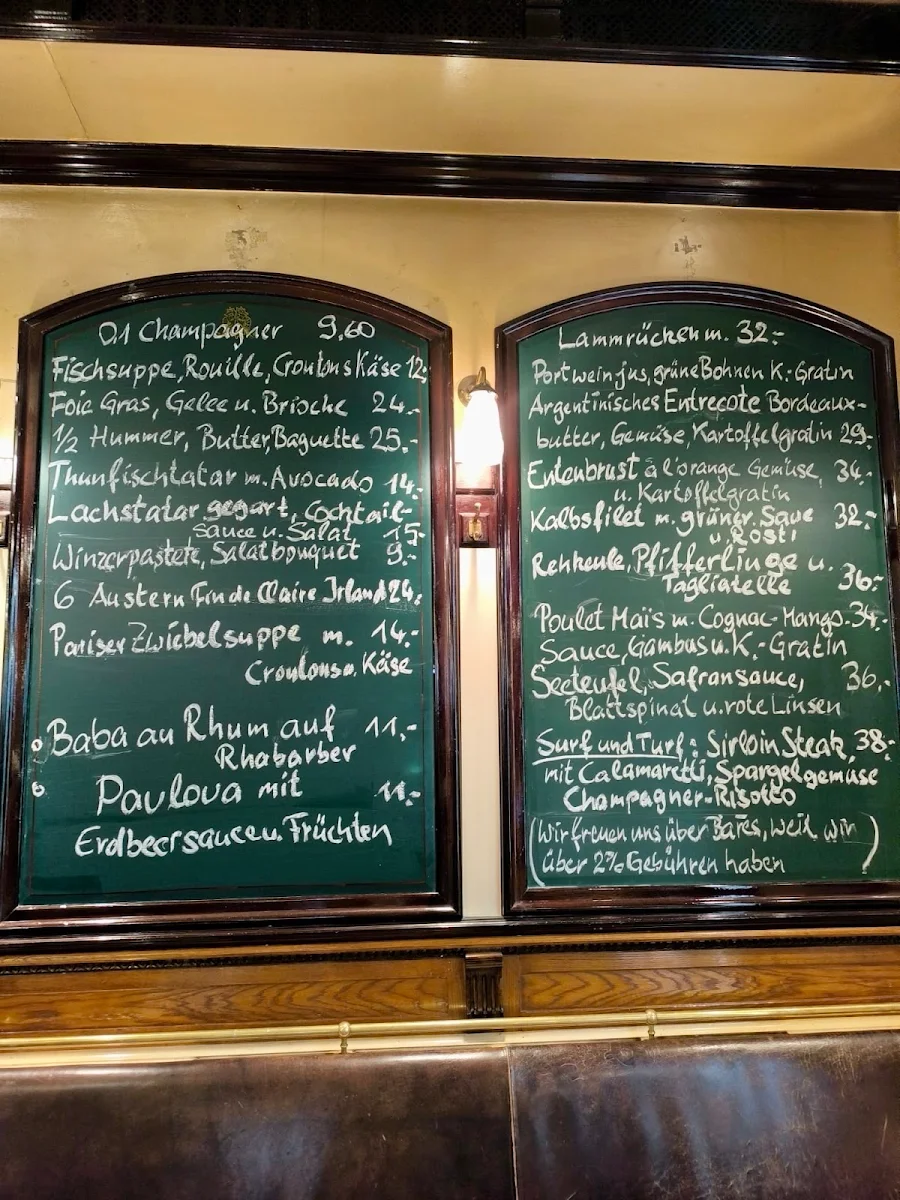 0,1 Champagner 9,60
Fischsuppe, Rouille, Croutons Käse 12,-
Foie Gras, Gelee u. Brioche 24.-
1/2 Hummer, Butter, Baguette 25.-
Thunfischtatar m. Avocado 14.-
Lachstatar gegart, Cocktail-
Sauce u. Salat 15-
Winzerpastete, Salatbouquet 9.-
6 Austern Fin de Claire Irland 24,-
Pariser Zwiebelsuppe m. 14.-
Croutons u. Käse
Baba au Rhum auf 11,-
Rhabarber
Pavlova mit 11.-
Erdbeersauce u. Früchten
Lammrücken m. 32.-
Portweinjus, grüne Bohnen K.-Gratin
Argentinisches Entrecote Bordeaux-
butter, Gemüse, Kartoffelgratin 29.-
Entenbrust à l'orange Gemüse, 34.-
u. Kartoffelgratin
Kalbsfilet m. grüner. Saue 32.-
u. Rösti
Rehkeule, Pfifferlinge u.
Tagliatelle 36.-
Poulet Maïs m. Cognac-Mango- 34.-
Sauce, Gambas u. K.-Gratin
Seeteufel, Safransauce, 36.-
Blattspinat u. rote Linsen
Surf und Turf: Sirloin Steak, 38.-
mit Calamaretti, Spargelgemüse
Champagner-Risotto
(Wir freuen uns über Bares, weil wir
über 2% Gebühren haben)